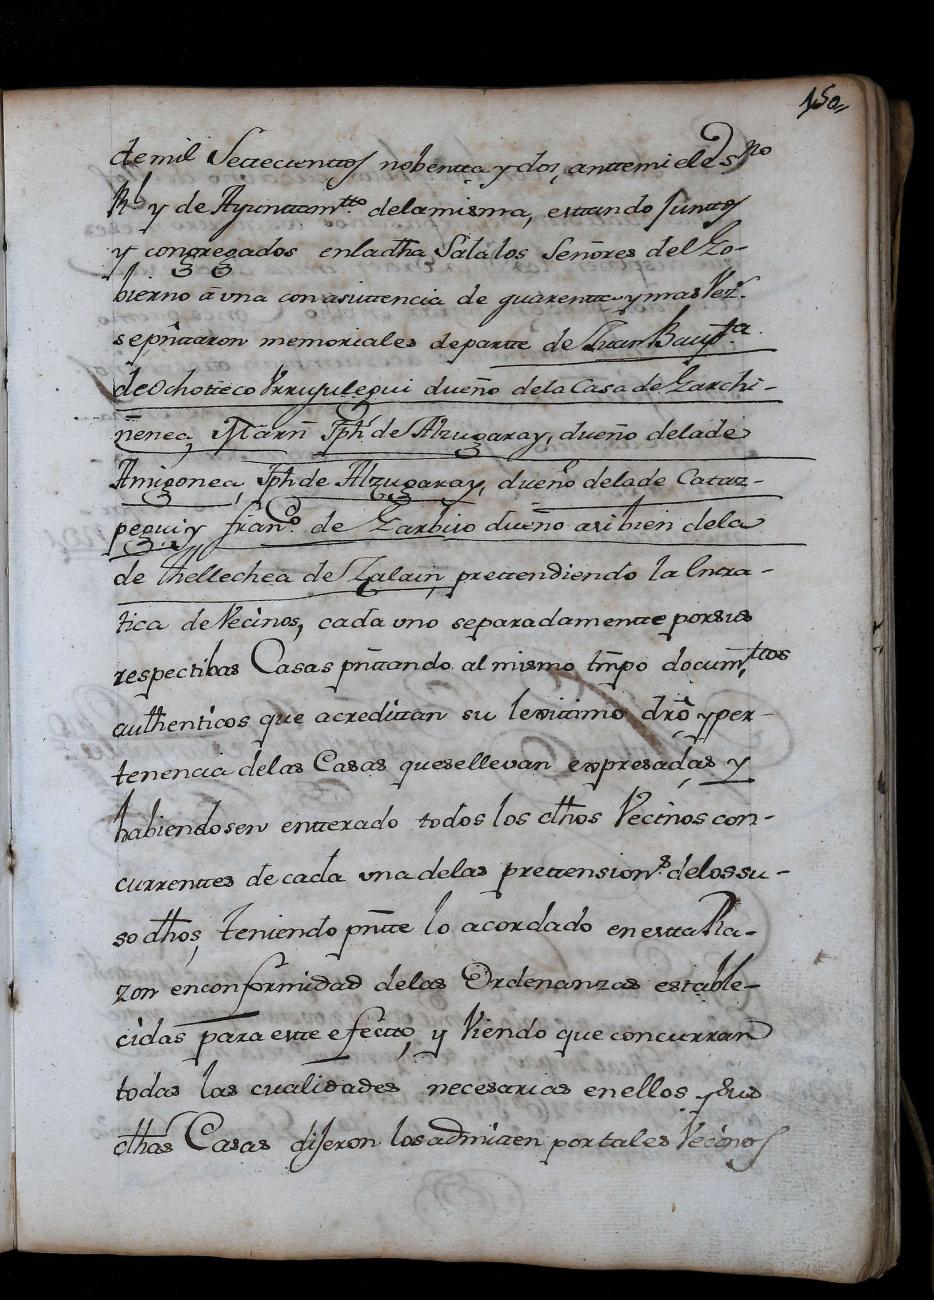 150,,
de mil Settecienttos nobentta y dos, antte mi el Essno
Rl y de Ayunttamtto de la misma, esttando Junttos
y congregados en la dha Sala los Señores del Go-
bierno â una con asisttencia de quarentta y mas Vezs.
se pñttaron memoriales de partte de Juan Baupta
de Ochotteco Yrrujulegui dueño de la Casa de Larchi-
ñenea, Marñ Jph de Alzugaray, dueño de la de
Amigonea, Jph de Alzugaray, dueño de la de Cattaz-
pegui y franco. de Zarbiso dueño asibien de la
de thellechea de Zalain, prettendiendo la Entra-
tica de Vecinos, cada uno separadamentte por sus
respectibas Casas pñttando al mismo tmpo documttos
authenticos que acredittan su lexittimo dro y per-
tenencia de las Casas que se llevan expresadas y
habiendosen entterado todos los dhos Vecinos con-
currenttes de cada una de las prettensions. de los su-
so dhos, teniendo pñtte lo acordado en estta Ra-
zon en conformidad de las Ordenanzas estable-
cidas para estte efectto, y Viendo que concurran
todas las cualidades necesarias en ellos y sus
dhas Casas dijeron los admitten por tales Vecinos